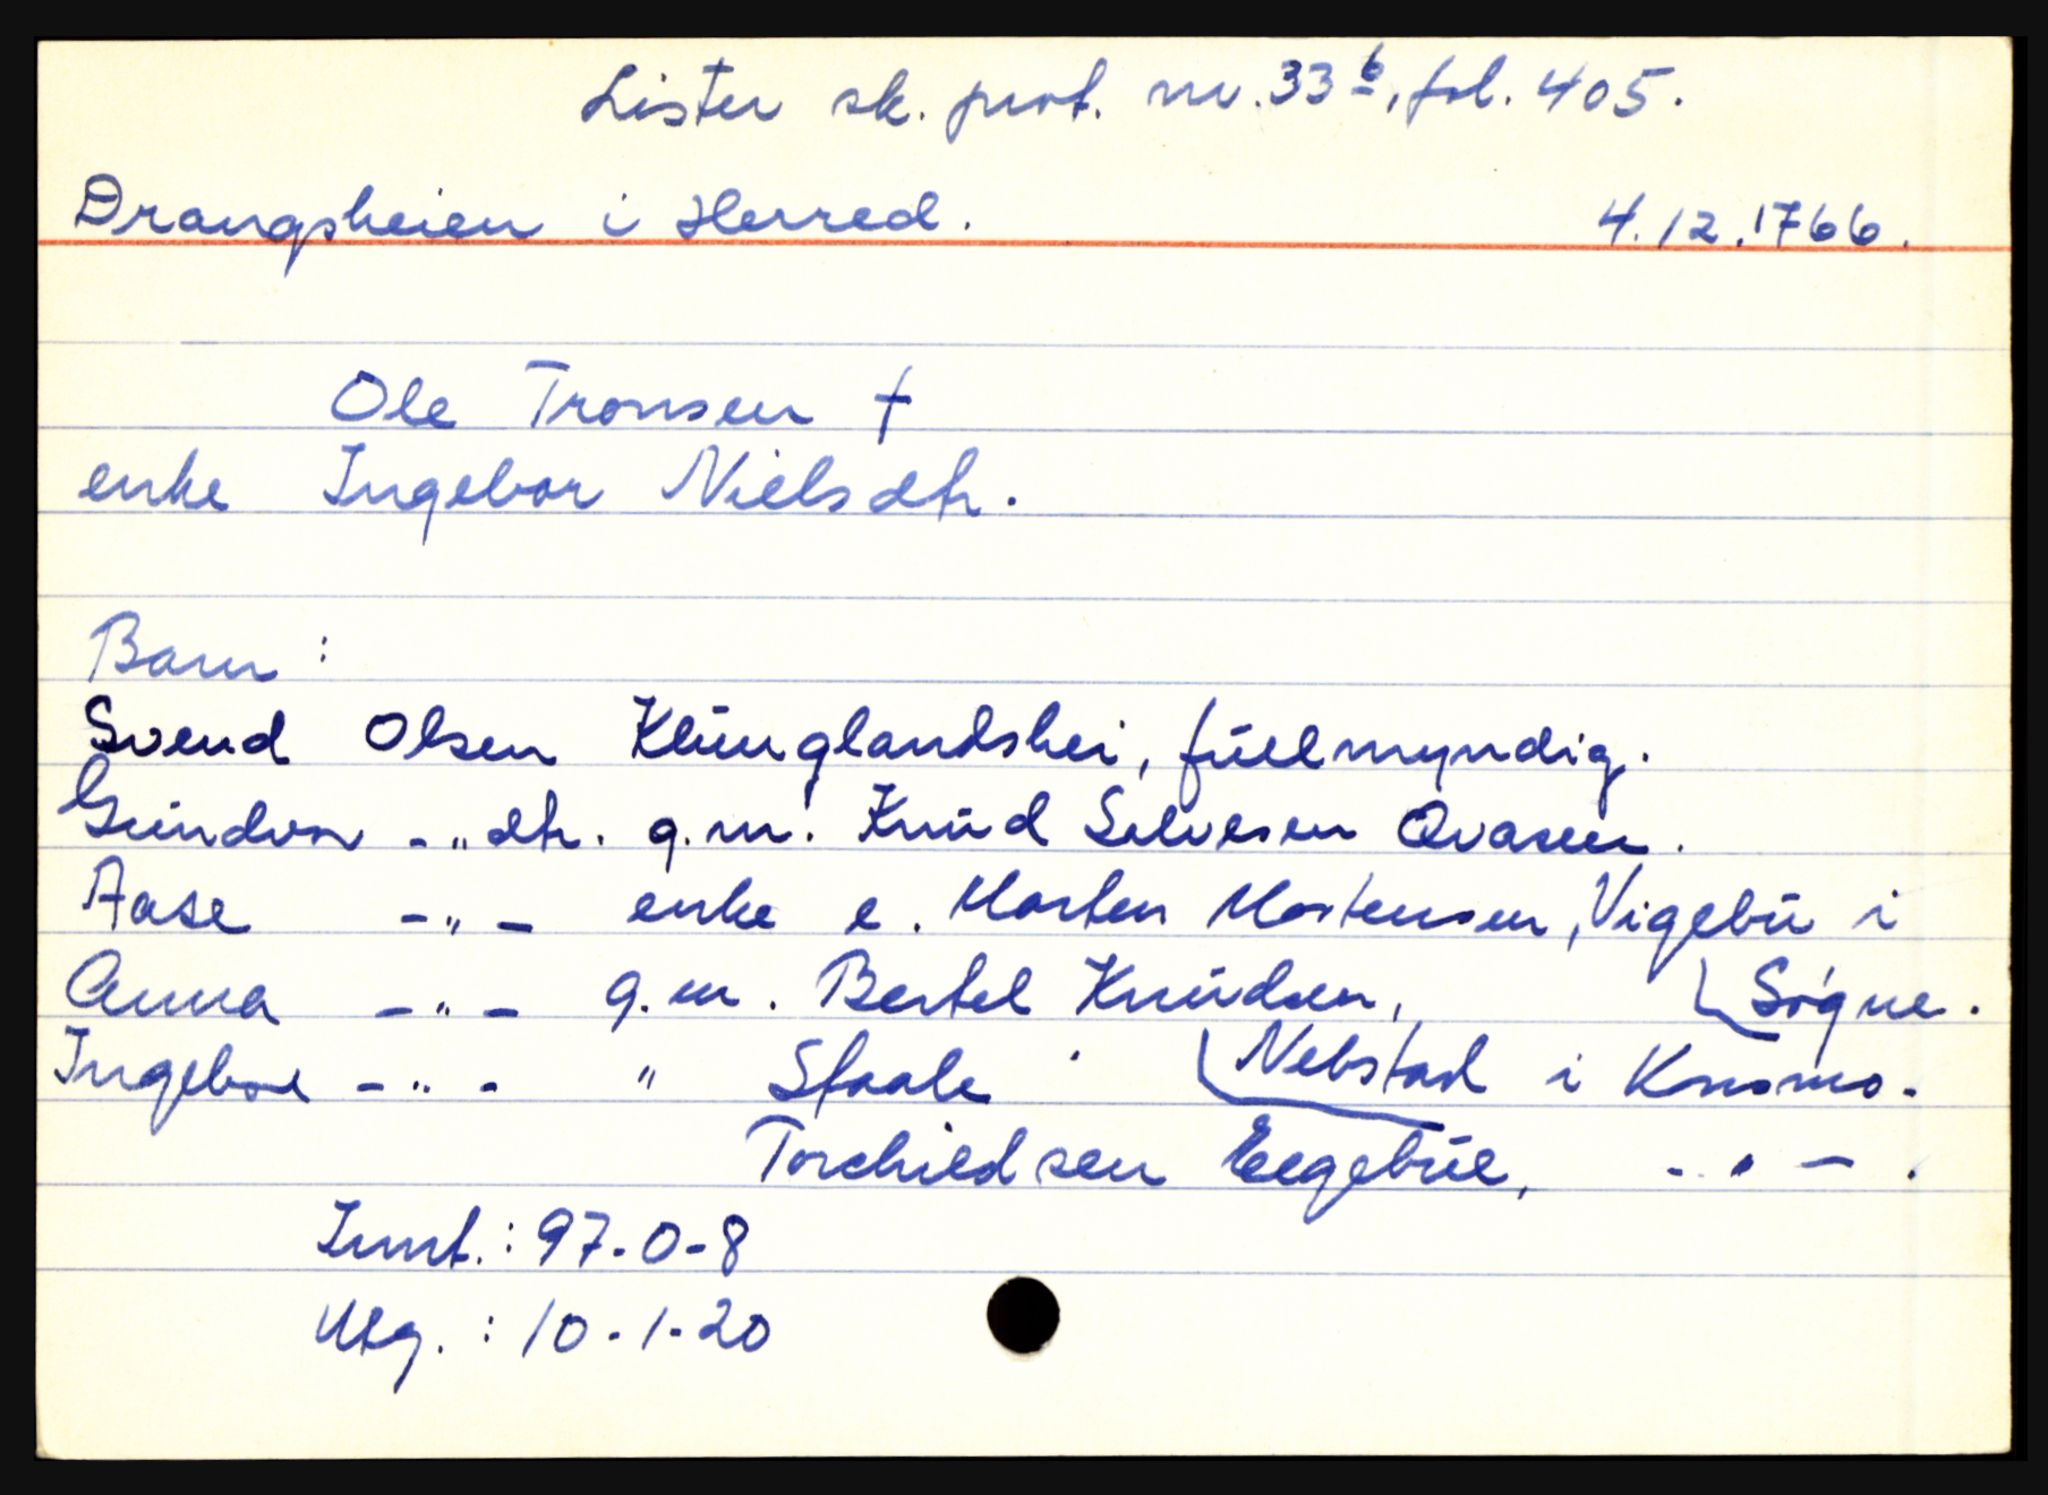 Lister sk. prot. nr. 33 b, fol. 405.
Drangsheien i Herred. 4.12.1766.
Ole Tronsen †
enke Ingebor Nielsdtr.
Barn:
Svend Olsen Klunglandshei, fullmyndig.
Gundvor -"- dtr. g.m. Knud Salvesen Qvasen.
Aase -"- enke e. Morten Mortensen, Vigebu i
Søgne.
Anna -"- g.m. Bertel Knudsen,
Nebstad i Konsmo.
Ingebor -"- " Staale
Torchieldsen Eegebul, -"-.
Innt.: 97-0-8
Utg.: 10-1-20